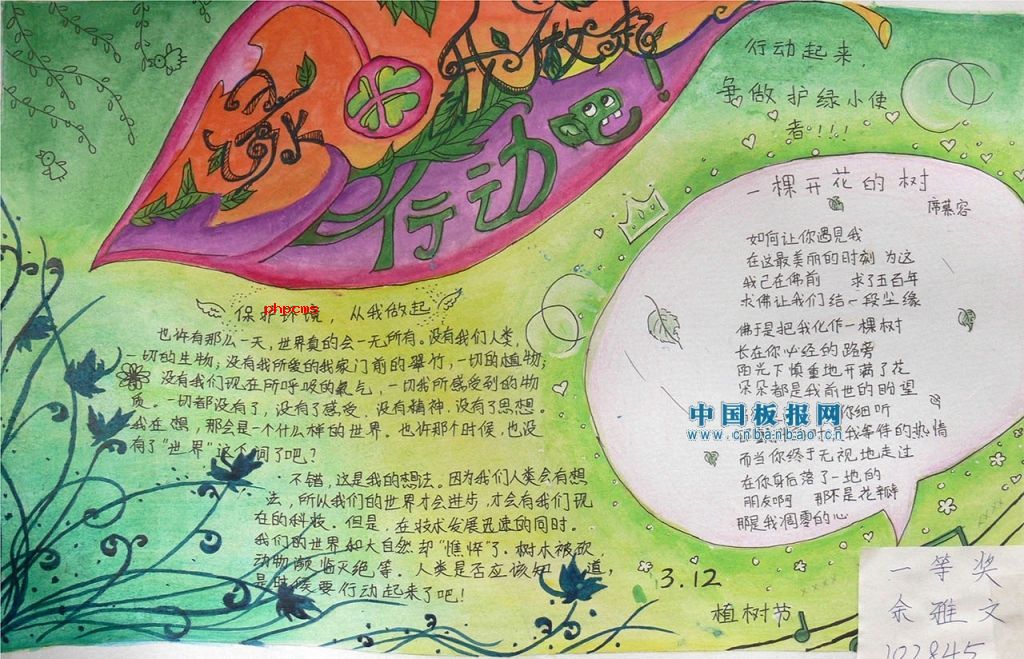 绿
我做起
行动吧!
行动起来,
争做护绿小使
者!!!
一棵开花的树
席慕容
如何让你遇见我
在这最美丽的时刻 为这
我已在佛前 求了五百年
求佛让我们结一段尘缘
佛于是把我化作一棵树
长在你必经的路旁
阳光下慎重地开满了花
朵朵都是我前世的盼望
你细听
我等待的热情
而当你终于无视地走过
在你身后落了一地的
朋友啊 那不是花瓣
那是我凋零的心
中国板报网
www.cnbanbao.cn
phpcms
保护环境,从我做起
也许有那么一天,世界真的会一无所有。没有我们人类,
一切的生物;没有我所爱的我家门前的翠竹,一切的植物;
没有我们现在所呼吸的氧气,一切我所感受到的物
质。一切都没有了,没有了感受、没有精神、没有了思想。
我在想,那会是一个什么样的世界。也许那个时候,也没
有了“世界”这个词了吧?
不错,这是我的想法。因为我们人类会有想
法,所以我们的世界才会进步,才会有我们现
在的科技。但是,在技术发展迅速的同时。
我们的世界和大自然却“憔悴”了。树木被砍,
动物濒临灭绝等。人类是否应该知道,
是时候要行动起来了吧!
3.12
植树节
一等奖
余雅文